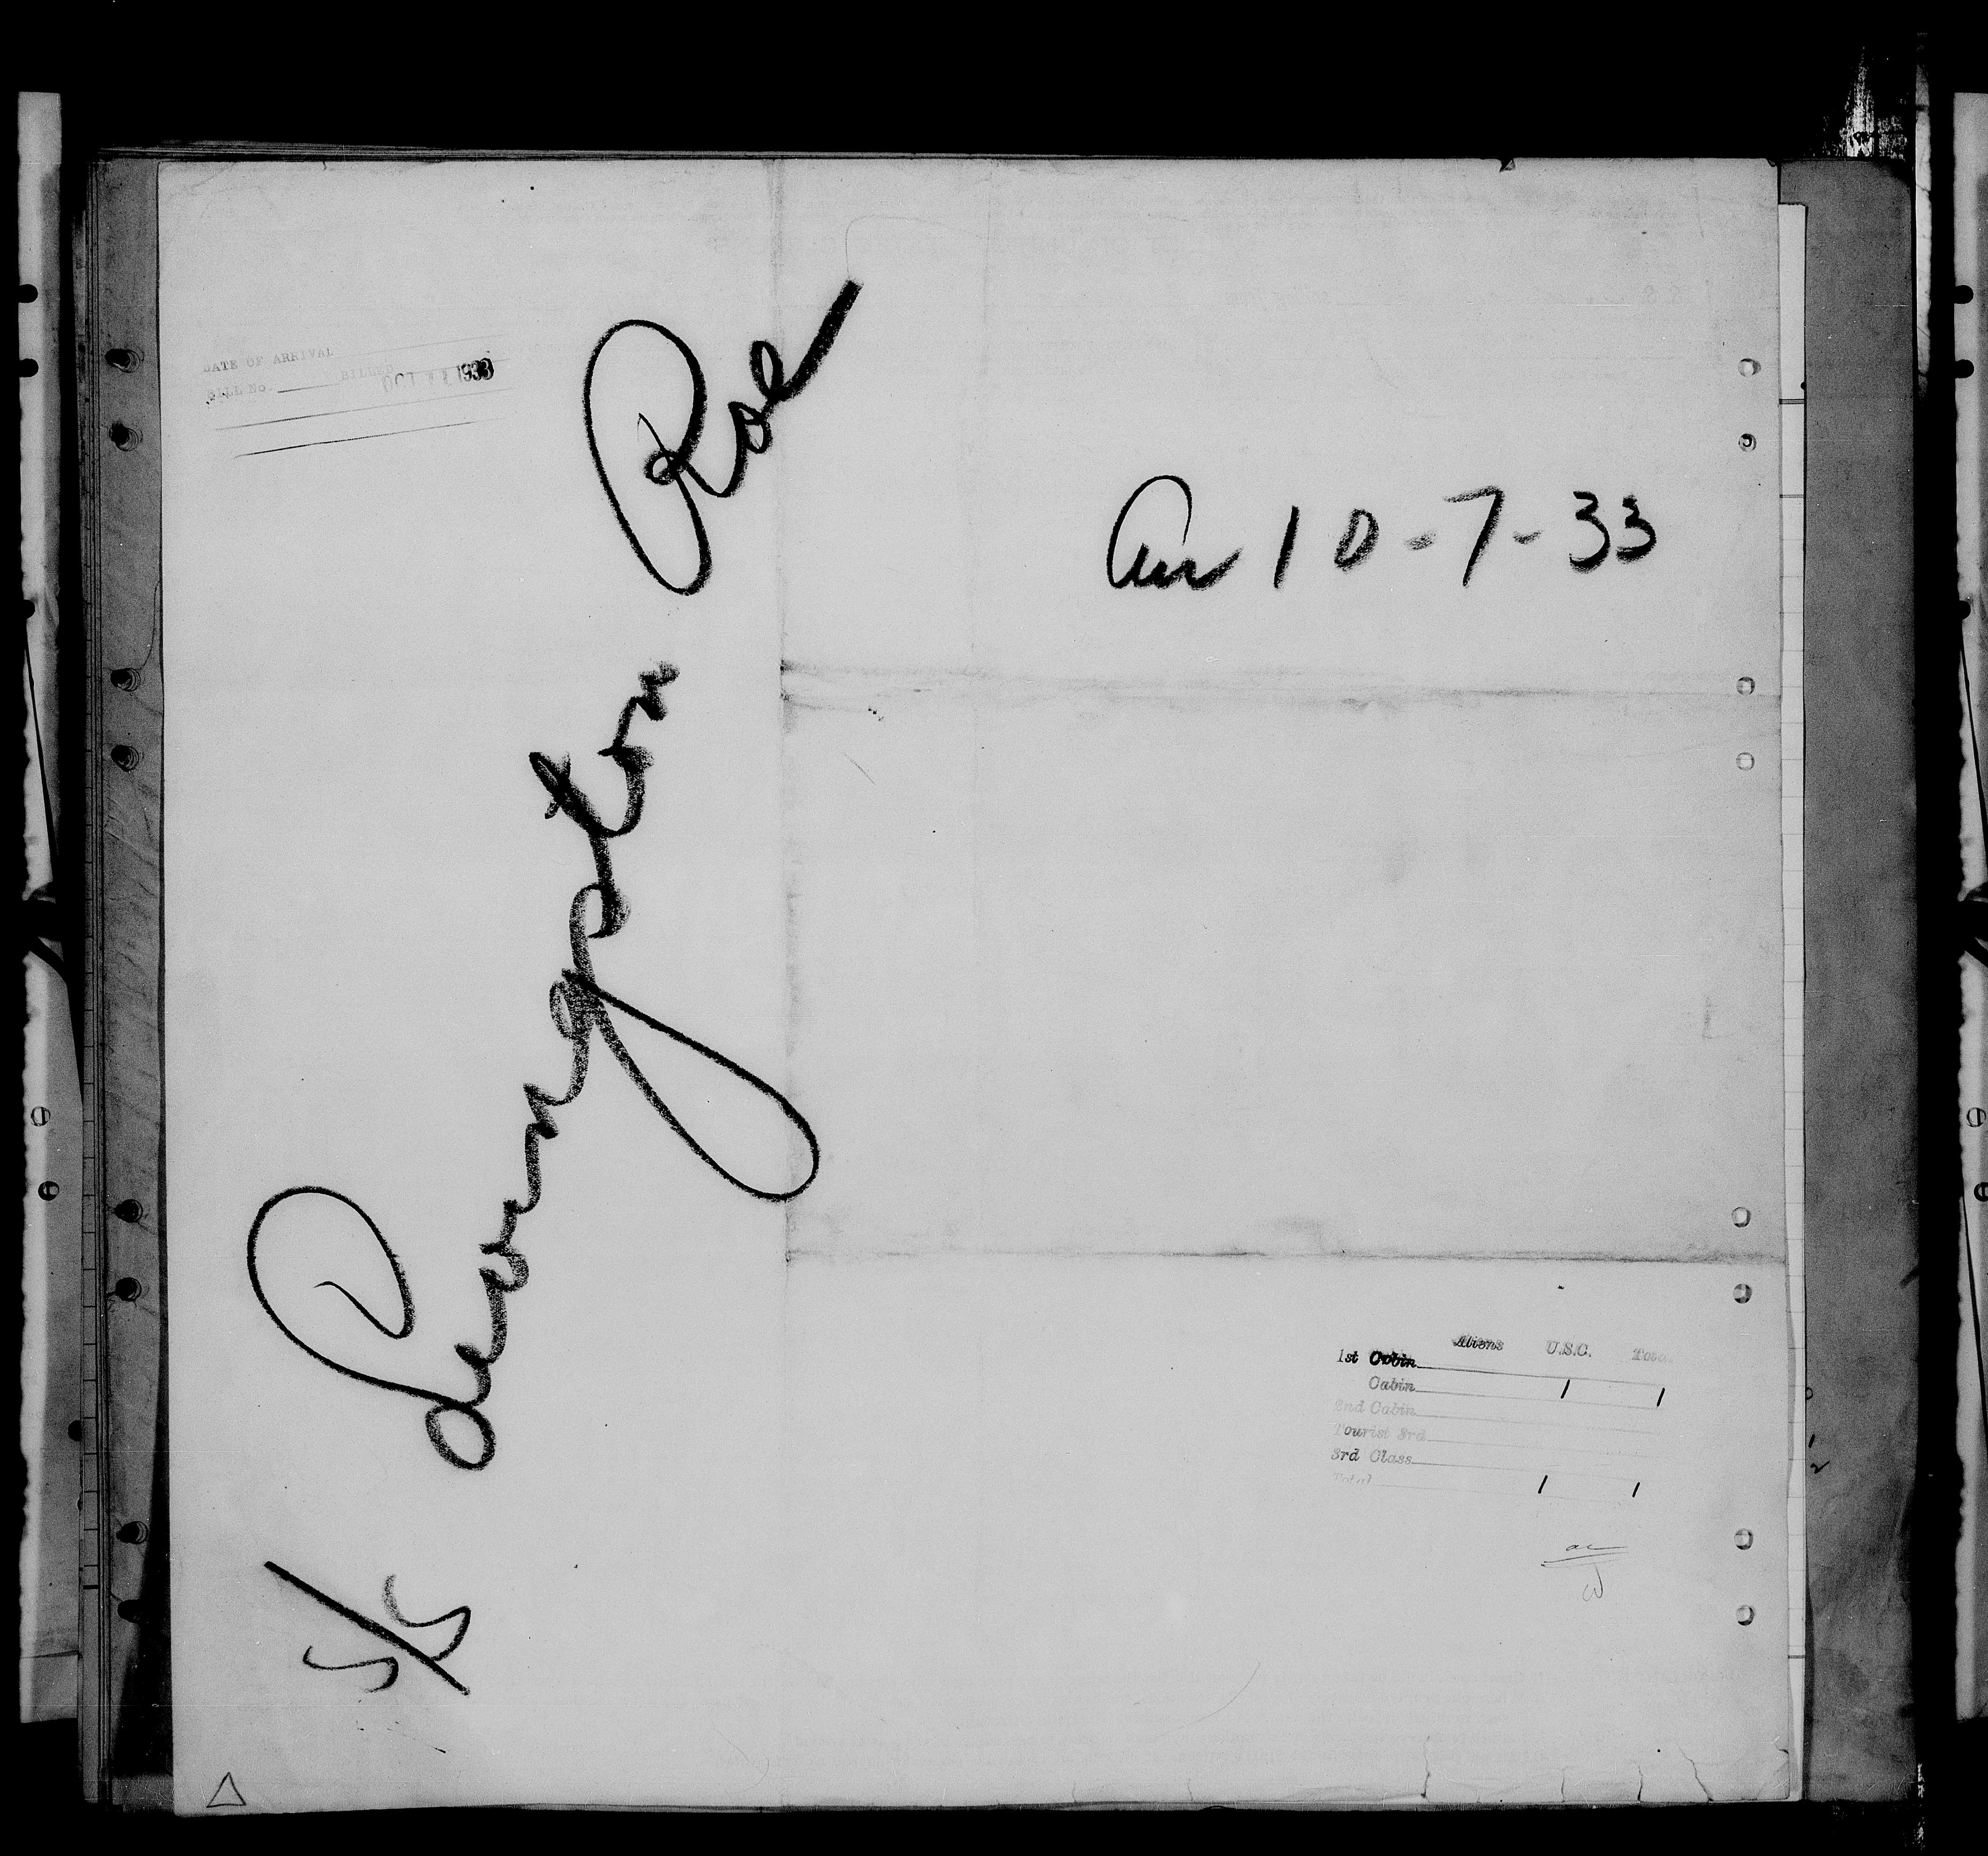 DATE OF ARRIVAL
BILL No. BILLED OCT 1933
S/S Livingston Roe
Arr 10-7-33
Aliens U.S.C. Total
1st Cabin
Cabin 1 1
2nd Cabin
Tourist 3rd
3rd Class
Total 1 1